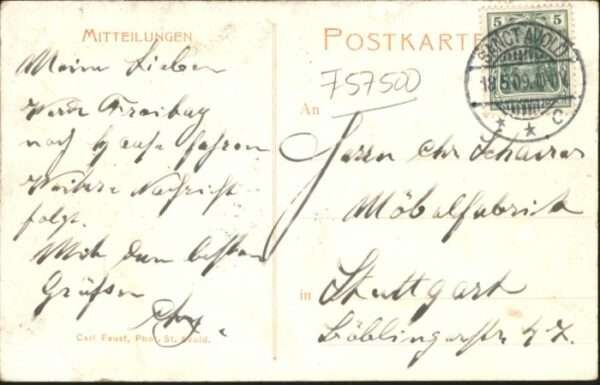 MITTEILUNGEN
Meine Lieben
Werde Freitag
nach Hause fahren
Weitere Nachricht
folgt.
Mit den besten
Grüßen
Carl Faust, Phot. St. Avold.
POSTKARTE
5 5
SANCT AVOLD
18.5.09.
* * C
757500
An
Herrn Chr Schairer
Möbelfabrik
in Stuttgart
Böblingerstr